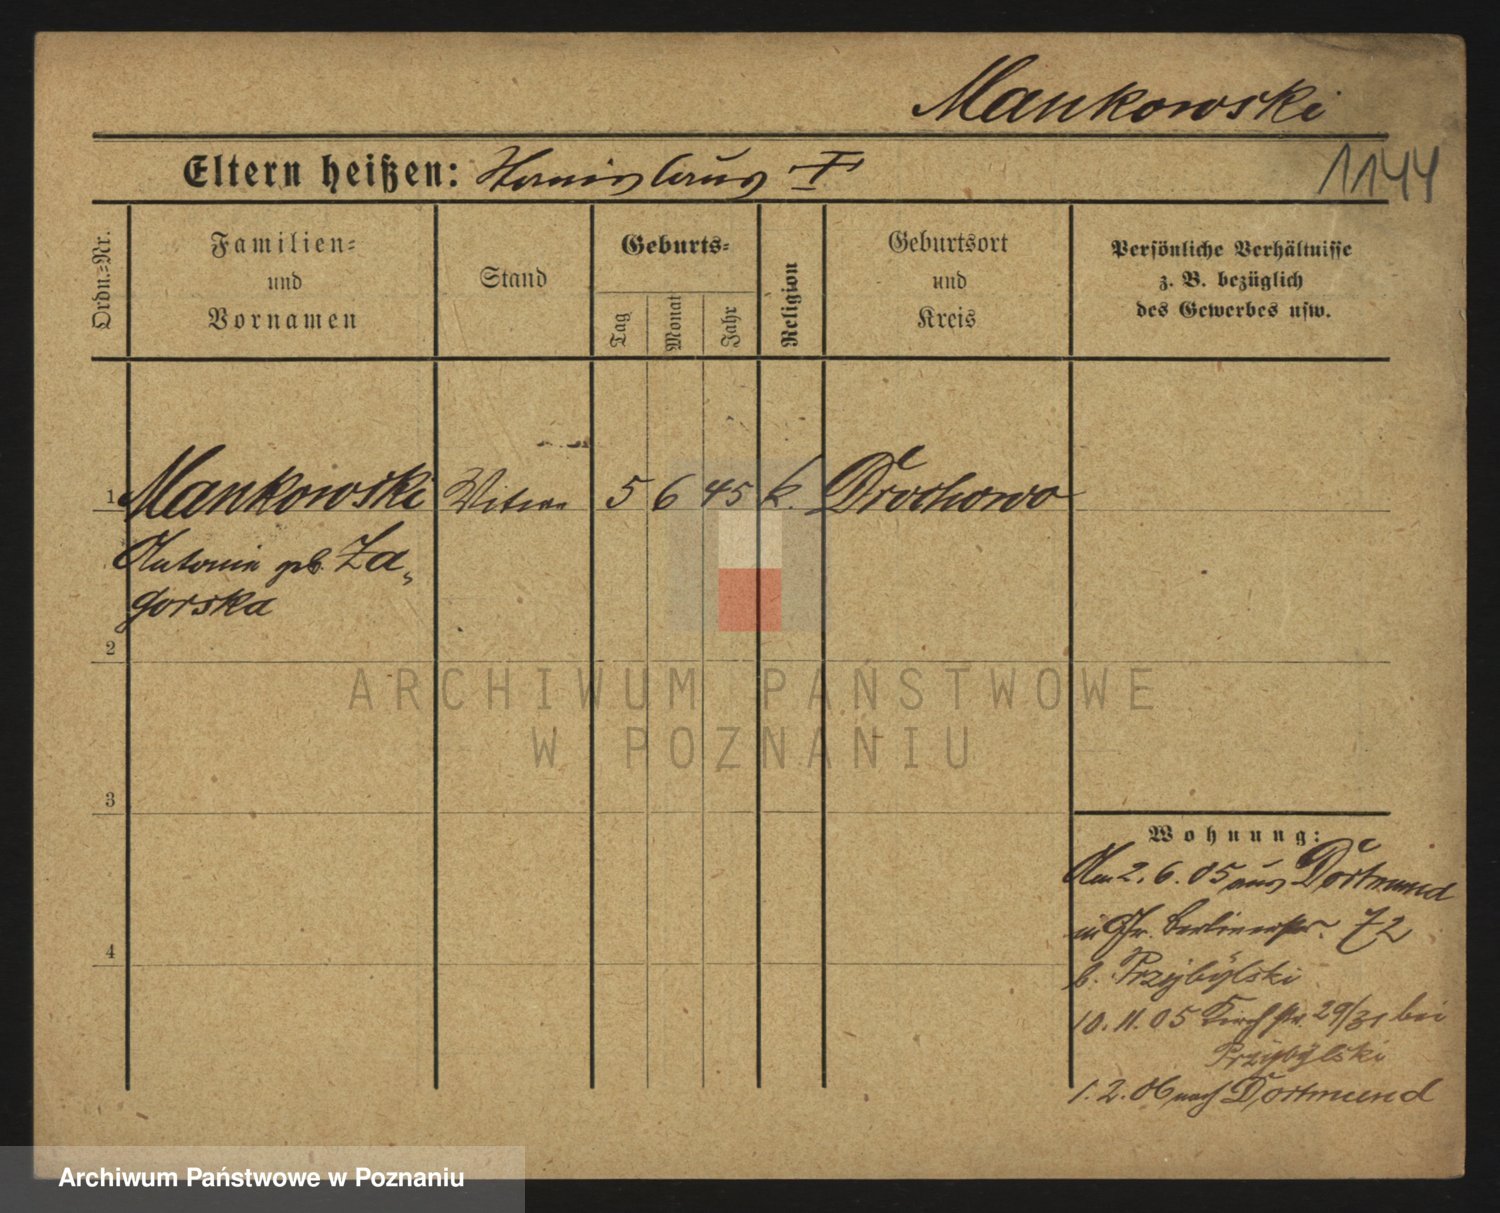 Mankowski
1144
Eltern heißen: Stanislaus †
Ordn.=Nr.
Familien=
und
Vornamen
Stand
Geburts=
Tag
Monat
Jahr
Religion
Geburtsort
und
Kreis
Persönliche Verhältnisse
z. B. bezüglich
des Gewerbes usw.
1 Mankowski Witwe 5 6 45 k. Drochowo
Antonie gb. Za-
gorska
2
3
4
Wohnung:
Am 2. 6. 05 aus Dortmund
in Berlinerstr. 72
b. Przybÿlski
10. 11. 05 Kirchstr. 29/31 bei
Przybÿlski
1. 2. 06 nach Dortmund
ARCHIWUM PAŃSTWOWE
W POZNANIU
Archiwum Państwowe w Poznaniu